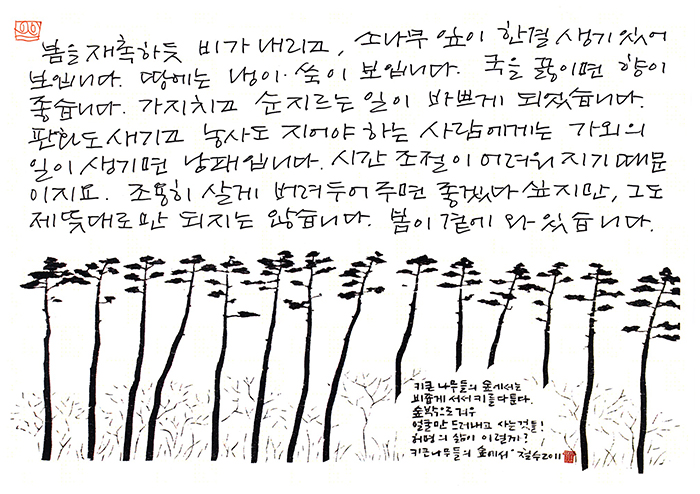 봄을 재촉하듯 비가 내리고, 소나무 잎이 한결 생기있어
보입니다. 땅에는 냉이·쑥이 보입니다. 국을 끓이면 향이
좋습니다. 가지치고 순지르는 일이 바쁘게 되었습니다.
판화도 새기고 농사도 지어야 하는 사람에게는 가외의
일이 생기면 낭패입니다. 시간 조절이 어려워지기 때문
이지요. 조용히 살게 버려두어 주면 좋겠다 싶지만, 그도
제 뜻대로만 되지는 않습니다. 봄이 곁에 와 있습니다.
키큰 나무들의 숲에서는
비좁게 서서 키를 다툰다.
숲 밖으로 겨우
얼굴만 드러내고 사는 것들!
허명의 삶이 이럴까?
키큰 나무들의 숲에서 철수 2011